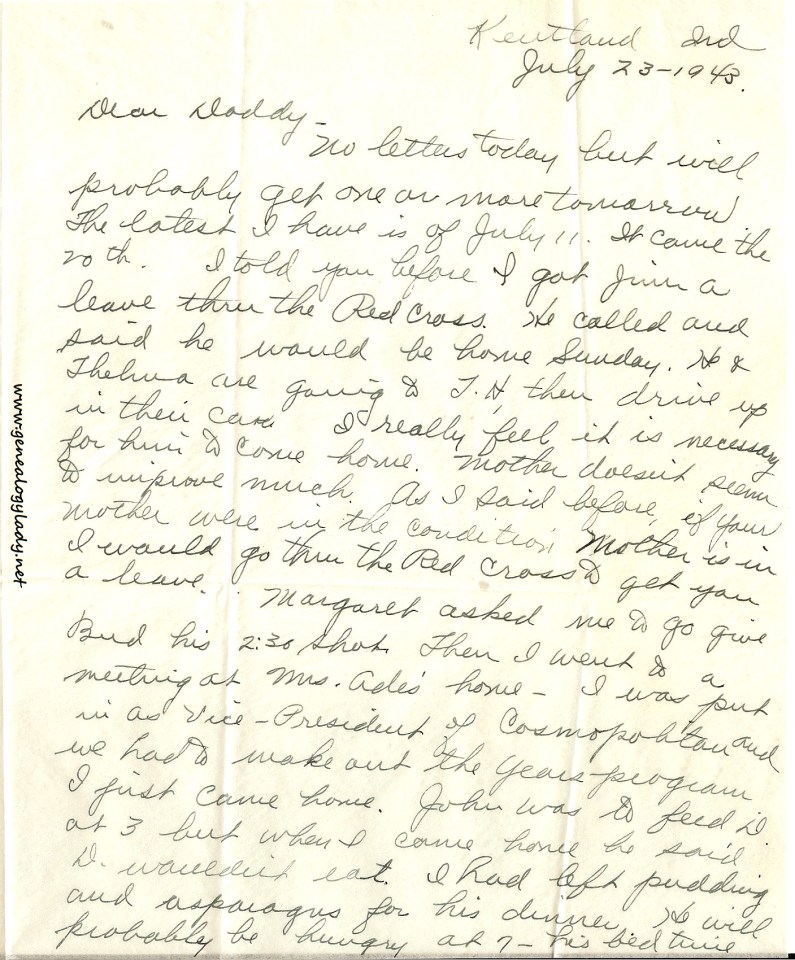 Kentland Ind
July 23-1943.
Dear Daddy-
No letters today but will
probably get one or more tomorrow
The latest I have is of July 11. It came the
20th. I told you before I got Jim a
leave thru the Red Cross. He called and
said he would be home Sunday. He &
Thelma are going to T.H. then drive up
in their car. I really feel it is necessary
for him to come home. Mother doesn't seem
to improve much. As I said before, if your
mother were in the condition Mother is in
I would go thru the Red Cross to get you
a leave. Margaret asked me to go give
Bud his 2:30 shot. Then I went to a
meeting at Mrs. Ade's home - I was put
in as Vice-President of Cosmopolitan and
we had to make out the years program
I just came home. John was to feed D
at 3 but when I came home he said
D. wouldn't eat. I had left pudding
and asparagus for his dinner. He will
probably be hungry at 7- his bed time
www.genealogylady.net